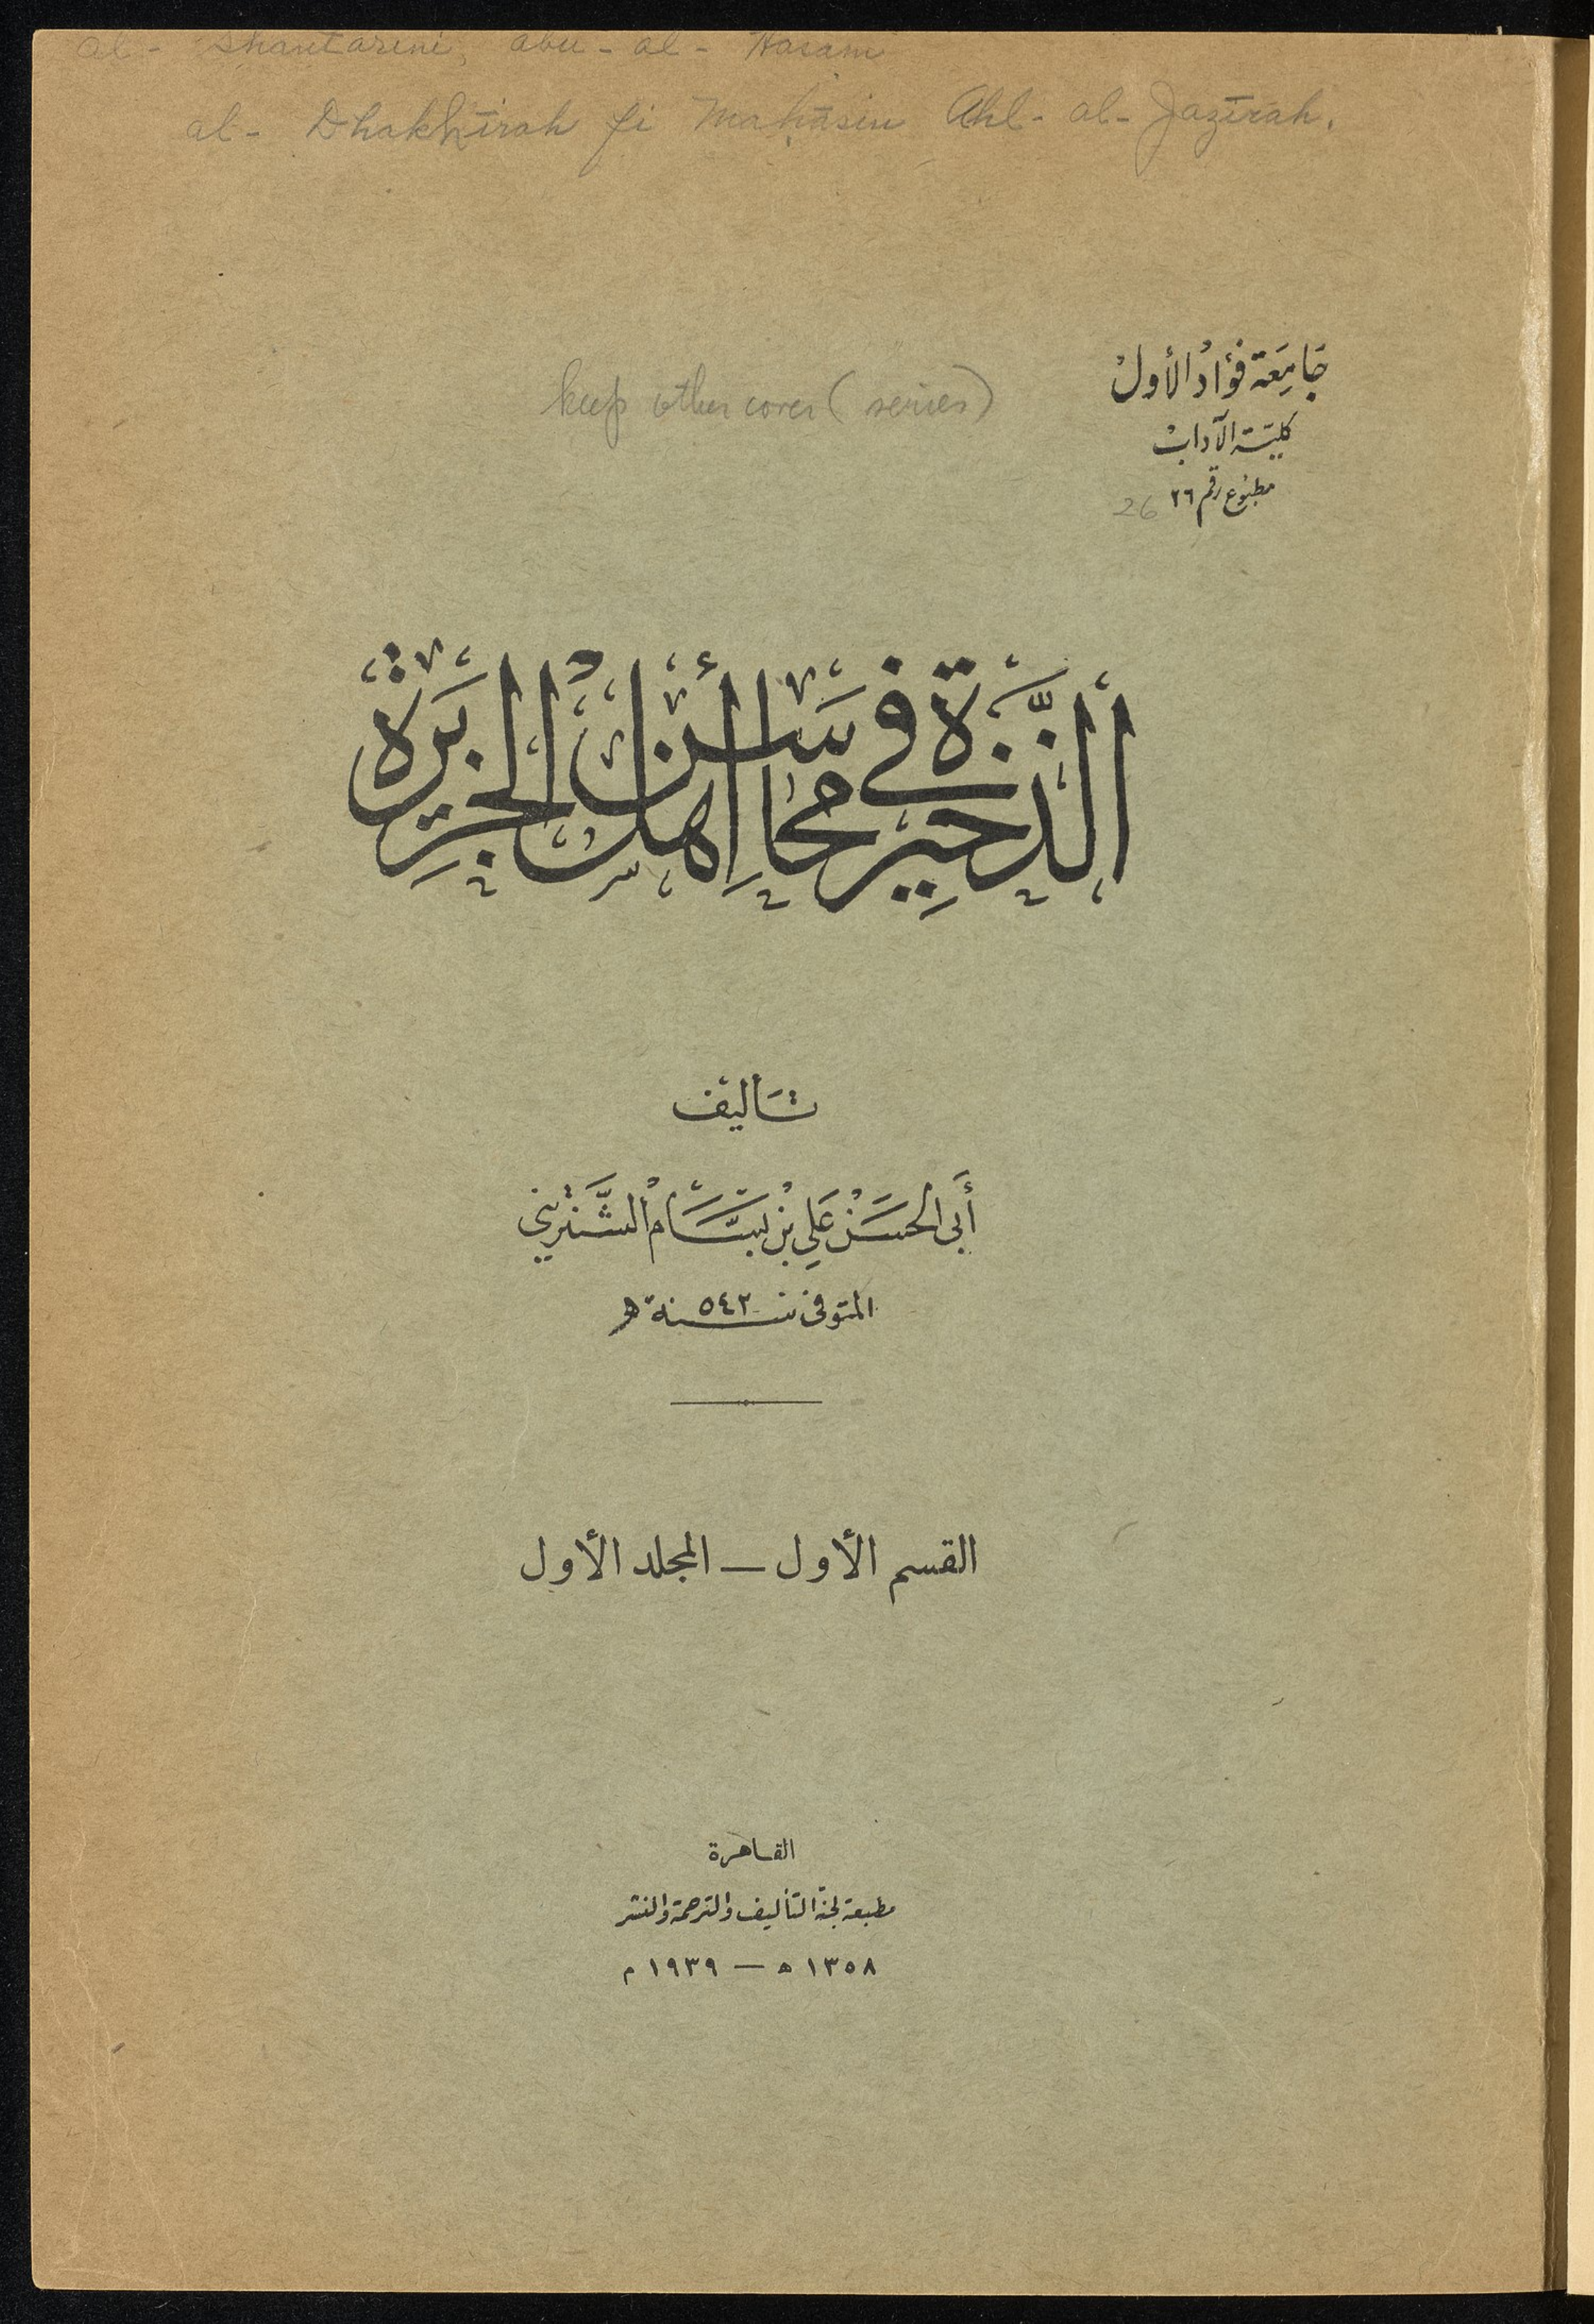 al- Shantarini, abu-al-Hasam
al- Dhakhīrah fi Maḥāsin Ahl-al-Jazīrah.
جَامِعَة فؤاد الأول
keep other cover (series)
كليّة الآداب
مطبوع رقم ٢٦ 26
ألذَّخِيرَة في مَحَاسِن أَهْل الجَزِيرَة
تَأليف
أَبي الحَسَن عَلي بْن بَسَّام الشَّنتَريني
المتوفى سنة ٥٤٢ ھ
القسم الأول — المجلد الأول
القاهرة
مطبعة لجنة التأليف والترجمة والنشر
١٣٥٨ ه — ١٩٣٩ م